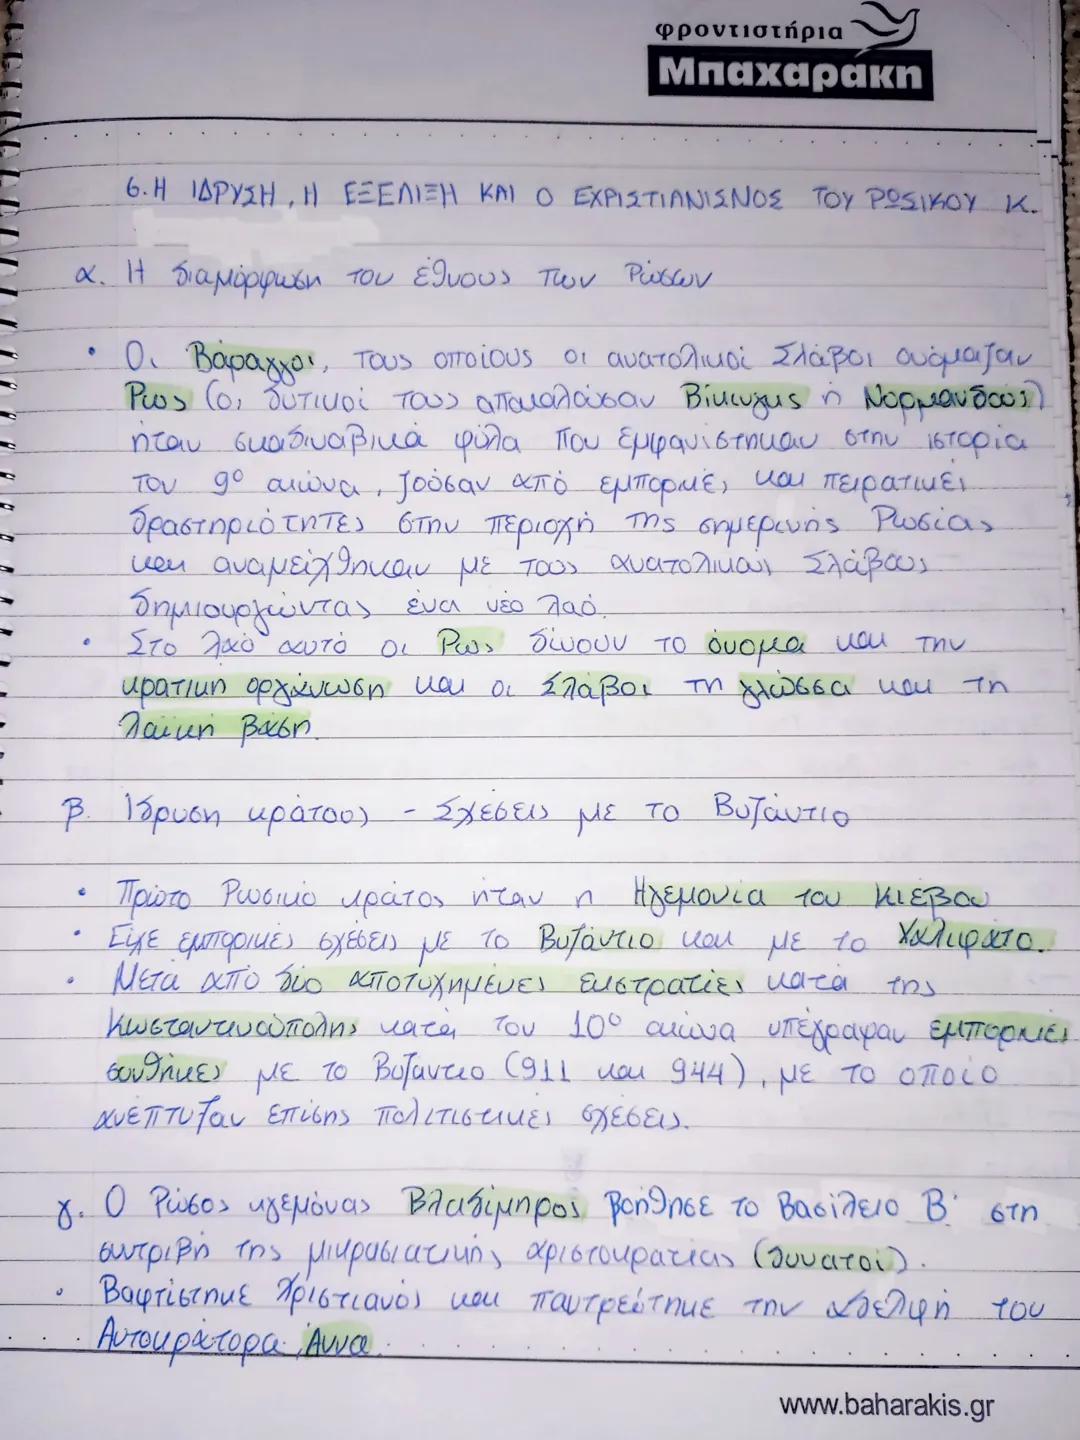 φροντιστήρια
Μπαχαράκη
6. Η ΙΔΡΥΣΗ, Η ΕΞΕΛΙΞΗ ΚΑΙ Ο ΕΧΡΙΣΤΙΑΝΙΣΜΟΣ ΤΟΥ ΡΩΣΙΚΟΥ Κ.
α. Η διαμόρφωση του έθνους των Ρώσων
• Οι Βάραγγοι, τους οποίους οι ανατολικοί Σλάβοι ονόμαζαν
Ρως (οι δυτικοί τους αποκαλούσαν Βίκινγκς ή Νορμανδούς)
ήταν σκαδιναβικά φύλα που εμφανίστηκαν στην ιστορία
τον 9ο αιώνα, ζούσαν από εμπορικές και πειρατικές
δραστηριότητες στην περιοχή της σημερινής Ρωσίας
και αναμείχθηκαν με τους ανατολικούς Σλάβους
δημιουργώντας ένα νέο λαό.
• Στο λαό αυτό οι Ρως δίνουν το όνομα και την
κρατική οργάνωση και οι Σλάβοι τη γλώσσα και τη
λαϊκή βάση.
β. Ίδρυση κράτους - Σχέσεις με το Βυζάντιο
• Πρώτο Ρωσικό κράτος ήταν η Ηγεμονία του Κιέβου
• Είχε εμπορικές σχέσεις με το Βυζάντιο και με το Χαλιφάτο.
• Μετά από δύο αποτυχημένες εκστρατείες κατά της
Κωσταντινούπολης κατά τον 10ο αιώνα υπέγραψαν εμπορικές
συνθήκες με το Βυζάντιο (911 και 944), με το οποίο
ανέπτυξαν επίσης πολιτιστικές σχέσεις.
γ. Ο Ρώσος ηγεμόνας Βλαδίμηρος βοήθησε το Βασίλειο Β' στη
συντριβή της μικρασιατικής αριστοκρατίας (δυνατοί).
• Βαφτίστηκε Χριστιανός και παντρεύτηκε την αδελφή του
Αυτοκράτορα, Άννα.
www.baharakis.gr